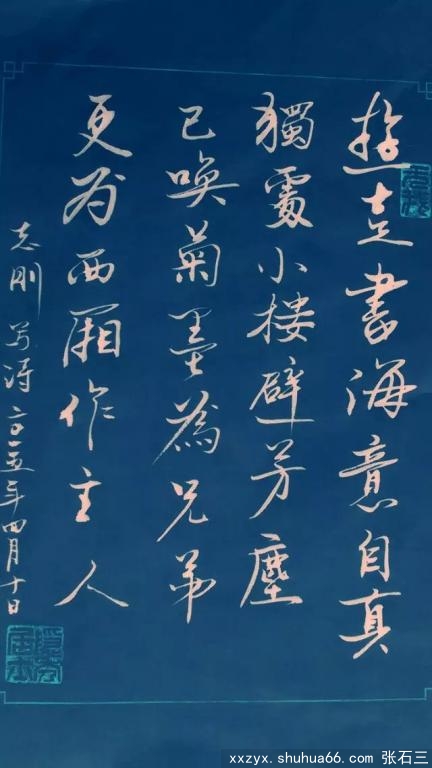 遊走書海意自真
獨處小楼避芳塵
已唤菊墨為兄弟
更为西厢作主人
志刚写诗二〇一五年四月十日
xxzyx.shuhua66.com 张石三